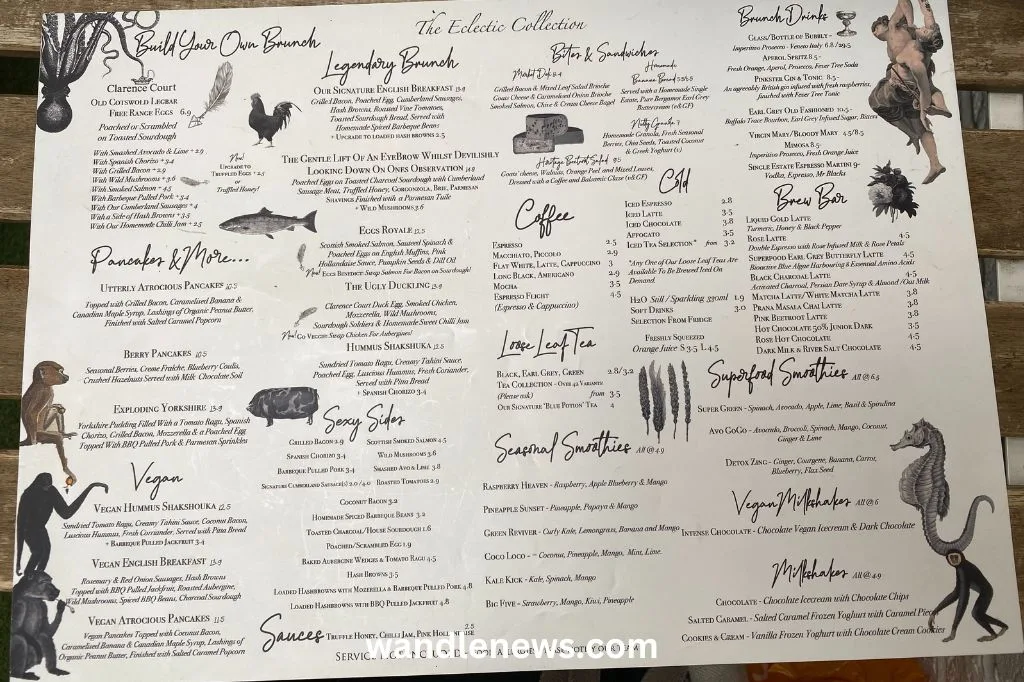 The Eclectic Collection
Build Your Own Brunch
Clarence Court
Old Cotswold Legbar
Free Range Eggs 6.9
Poached or Scrambled
on Toasted Sourdough
With Smashed Avocado & Lime + 2.9
With Spanish Chorizo + 3.4
With Grilled Bacon + 2.9
With Wild Mushrooms + 3.6
With Smoked Salmon + 4.5
With Barbeque Pulled Pork + 3.4
With Our Cumberland Sausages + 4
With a Side of Hash Browns + 3.5
With Our Homemade Chilli Jam + 2.5
Now!
Upgrade to
Truffled Eggs + 2.5
or
Truffled Honey!
Pancakes & More...
Utterly Atrocious Pancakes 10.5
Topped with Grilled Bacon, Caramelised Banana &
Canadian Maple Syrup, Lashings of Organic Peanut Butter,
Finished with Salted Caramel Popcorn
Berry Pancakes 10.5
Seasonal Berries, Creme Fraiche, Blueberry Coulis,
Crushed Hazelnuts Served with Milk Chocolate Soil
Exploding Yorkshire 13.9
Yorkshire Pudding Filled With a Tomato Ragu, Spanish
Chorizo, Grilled Bacon, Mozzerella & a Poached Egg
Topped With BBQ Pulled Pork & Parmesan Sprinkles
Vegan
Vegan Hummus Shakshouka 12.5
Sundried Tomato Ragu, Creamy Tahini Sauce, Coconut Bacon,
Luscious Hummus, Fresh Corriander, Served with Pitta Bread
+ Barbeque Pulled Jackfruit 3.4
Vegan English Breakfast 13.9
Rosemary & Red Onion Sausages, Hash Browns
Topped with BBQ Pulled Jackfruit, Roasted Aubergine,
Wild Mushrooms, Spiced BBQ Beans, Charcoal Sourdough
Vegan Atrocious Pancakes 11.5
Vegan Pancakes Topped with Coconut Bacon,
Caramelised Banana & Canadian Maple Syrup, Lashings of
Organic Peanut Butter, Finished with Salted Caramel Popcorn
Legendary Brunch
Our Signature English Breakfast 13.9
Grilled Bacon, Poached Egg, Cumberland Sausages,
Hash Browns, Roasted Vine Tomatoes,
Toasted Sourdough Bread, Served with
Homemade Spiced Barbeque Beans
+ Upgrade to Loaded Hash Browns 2.5
The Gentle Lift Of An EyeBrow Whilst Devilishly
Looking Down On Ones Observation 14.9
Poached Eggs on Toasted Charcoal Sourdough with Cumberland
Sausage Meat, Truffled Honey, Gorgonzola, Brie, Parmesan
Shavings Finished with a Parmesan Tuile
+ Wild Mushrooms 3.6
Eggs Royale 12.5
Scottish Smoked Salmon, Sauteed Spinach &
Poached Eggs on English Muffins, Pink
Hollandaise Sauce, Pumpkin Seeds & Dill Oil
Now! Eggs Benedict: Swap Salmon For Bacon on Sourdough!
The Ugly Duckling 13.9
Clarence Court Duck Egg, Smoked Chicken,
Mozzerella, Wild Mushrooms,
Sourdough Soldiers & Homemade Sweet Chilli Jam
Now! Go Veggie: Swap Chicken For Aubergines!
Hummus Shakshuka 12.5
Sundried Tomato Ragu, Creamy Tahini Sauce,
Poached Egg, Luscious Hummus, Fresh Coriander,
Served with Pitta Bread
+ Spanish Chorizo 3.4
Sexy Sides
Grilled Bacon 2.9 Scottish Smoked Salmon 4.5
Spanish Chorizo 3.4 Wild Mushrooms 3.6
Barbeque Pulled Pork 3.4 Smashed Avo & Lime 3.8
Signature Cumberland Sausage(s) 2.0 / 4.0 Roasted Tomatoes 2.9
Coconut Bacon 3.2
Homemade Spiced Barbeque Beans 3.2
Toasted Charcoal/House Sourdough 1.6
Poached/Scrambled Egg 1.9
Baked Aubergine Wedges & Tomato Ragu 4.5
Hash Browns 3.5
Loaded Hashbrowns with Mozerella & Barbeque Pulled Pork 4.8
Loaded Hashbrowns with BBQ Pulled Jackfruit 4.8
Sauces Truffle Honey, Chilli Jam, Pink Hollandaise 2.5
Bites & Sandwiches
Market Deli 8.4
Grilled Bacon & Mixed Leaf Salad Brioche
Goats Cheese & Caramelised Onion Brioche
Smoked Salmon, Chive & Cream Cheese Bagel
Homemade
Banana Bread
Served with a Homemade Single
Estate, Pure Bergamot Earl Grey
Buttercream (v&GF)
Nutty Granola 7
Homemade Granola, Fresh Seasonal
Berries, Chia Seeds, Toasted Coconut
& Greek Yoghurt (v)
Heritage Beetroot Salad 8.5
Goats' cheese, Walnuts, Orange Peel and Mixed Leaves,
Dressed with a Coffee and Balsamic Glaze (v&GF)
Coffee
Espresso 2.5
Macchiato, Piccolo 2.9
Flat White, Latte, Cappuccino 3
Long Black, Americano 2.9
Mocha 3.5
Espresso Flight 4.5
(Espresso & Cappuccino)
Cold
Iced Espresso 2.8
Iced Latte 3.5
Iced Chocolate 3.8
Affogato 3.5
Iced Tea Selection* from 3.2
*Any One of Our Loose Leaf Teas Are
Available To Be Brewed Iced On
Demand.
H2O Still / Sparkling 330ml 1.9
Soft Drinks 3.0
Selection From Fridge
Freshly Squeezed
Orange Juice S 3.5 L 4.5
Loose Leaf Tea
Black, Earl Grey, Green 2.8/3.2
Tea Collection - Over 42 Varianth
(Please ask) from 3.5
Our Signature 'Blue Potion' Tea 4
Seasonal Smoothies All @ 4.9
Raspberry Heaven - Raspberry, Apple Blueberry & Mango
Pineapple Sunset - Pineapple, Papaya & Mango
Green Reviver - Curly Kale, Lemongrass, Banana and Mango
Coco Loco - ~ Coconut, Pineapple, Mango, Mint, Lime.
Kale Kick - Kale, Spinach, Mango
Big Five - Strawberry, Mango, Kiwi, Pineapple
Brunch Drinks
Glass/Bottle of Bubbly -
Imperitivo Prosecco - Veneto Italy 6.8 / 29.5
Aperol Spritz 8.5 -
Fresh Orange, Aperol, Prosecco, Fever Tree Soda
Pinkster Gin & Tonic 8.5 -
An agreeably British gin infused with fresh raspberries,
finished with Fever Tree Tonic
Earl Grey Old Fashioned 10.5 -
Buffalo Trace Bourbon, Earl Grey Infused Sugar, Bitters
Virgin Mary/Bloody Mary 4.5/8.5
Mimosa 8.5 -
Imperitivo Prosecco, Fresh Orange Juice
Single Estate Espresso Martini 9 -
Vodka, Espresso, Mr Blacks
Brew Bar
Liquid Gold Latte
Turmeric, Honey & Black Pepper 4.5
Rose Latte
Double Espresso with Rose Infused Milk & Rose Petals
Superfood Earl Grey Butterfly Latte 4.5
Bioactive Blue Algae Harbouring 8 Essential Amino Acids
Black Charcoal Latte 4.5
Activated Charcoal, Persian Date Syrup & Almond /Oat Milk
Matcha Latte/White Matcha Latte 3.8
Prana Masala Chai Latte 3.8
Pink Beetroot Latte 3.8
Hot Chocolate 50% Junior Dark 3.5
Rose Hot Chocolate 4.5
Dark Milk & River Salt Chocolate 4.5
Superfood Smoothies All @ 6.5
Super Green - Spinach, Avocado, Apple, Lime, Basil & Spirulina
Avo GoGo - Avocado, Broccoli, Spinach, Mango, Coconut,
Ginger & Lime
Detox Zing - Ginger, Courgette, Banana, Carrot,
Blueberry, Flax Seed
Vegan Milkshakes All @ 6
Intense Chocolate - Chocolate Vegan Icecream & Dark Chocolate
Milkshakes All @ 4.9
Chocolate - Chocolate Icecream with Chocolate Chips
Salted Caramel - Salted Caramel Frozen Yoghurt with Caramel Pieces
Cookies & Cream - Vanilla Frozen Yoghurt with Chocolate Cream Cookies
wandlenews.com